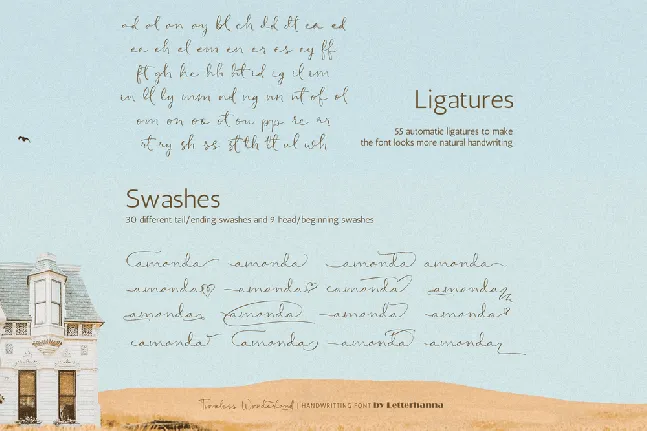 ad al an ay bl ch dd dt ea ed
ee eh el em en er es ey ff
ft gh he hh ht id ig il im
in ll ly mm nd ng nn nt of ol
om on os ot ou pp re rr
rt ry sh ss st th tt ul wh
Ligatures
55 automatic ligatures to make
the font looks more natural handwriting
Swashes
30 different tail/ending swashes and 9 head/beginning swashes
amonda amonda amonda amonda
amonda amonda amonda amonda
amonda amonda amonda amonda
amonda amonda amonda amonda
Timeless Wonderland | HANDWRITTING FONT by Letterhanna